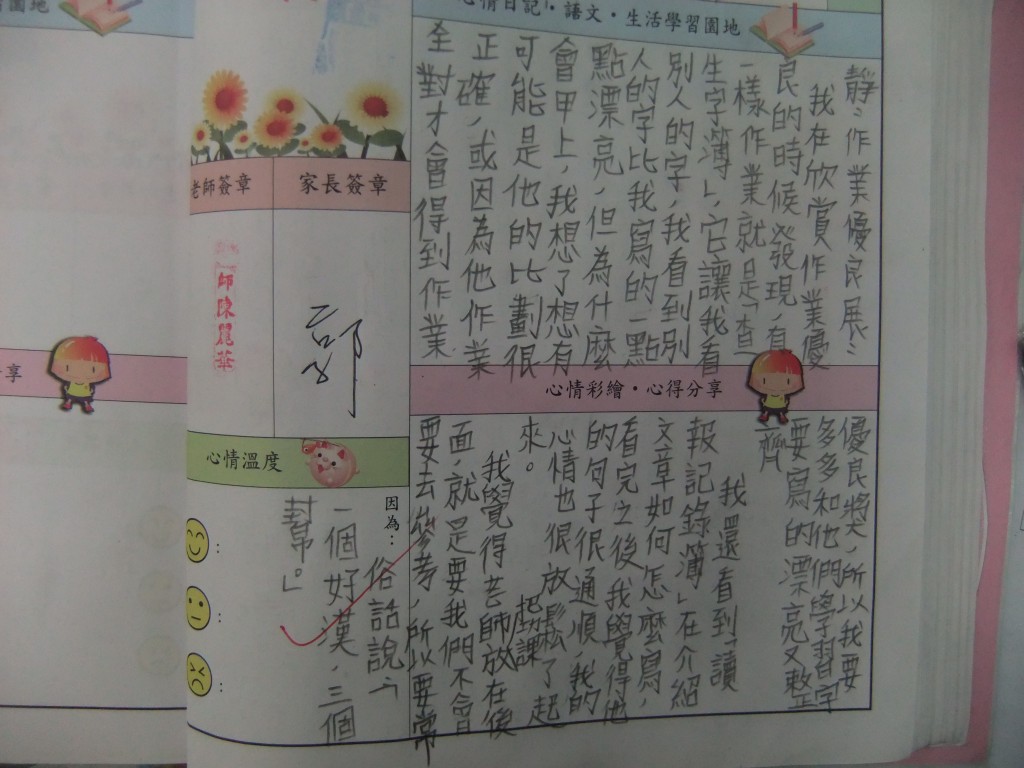 心情日記‧語文‧生活學習園地
靜:作業優良展:
我在欣賞作業優
良的時候發現,有
一樣作業就是「查
生字簿」,它讓我看
別人的字,我看到別
人的字比我寫的一點
點漂亮,但為什麼
會甲上,我想了想有
可能是他的比劃很
正確,或因為他作業
全對才會得到作業
心情彩繪‧心得分享
優良獎,所以我要
多多和他們學習字
要寫的漂亮又整
齊
我還看到「讀
報記錄簿」在介紹
文章如何怎麼寫,
看完之後我覺得他
的句子很通順,我的
心情也很放鬆了起
來。
我覺得老師把課放在後
面,就是要我們不會
要去參考,所以要常
老師簽章
家長簽章
師陳麗華
郭
心情溫度
因為:
俗話說:「
一個好漢,三個
幫。」
享
習園地